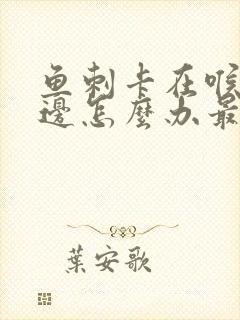 鱼刺卡在喉
邊怎麼办最
葉安歌